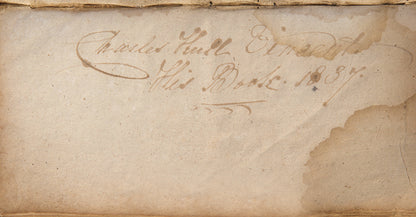 Charles Hull
His Book. 1837.